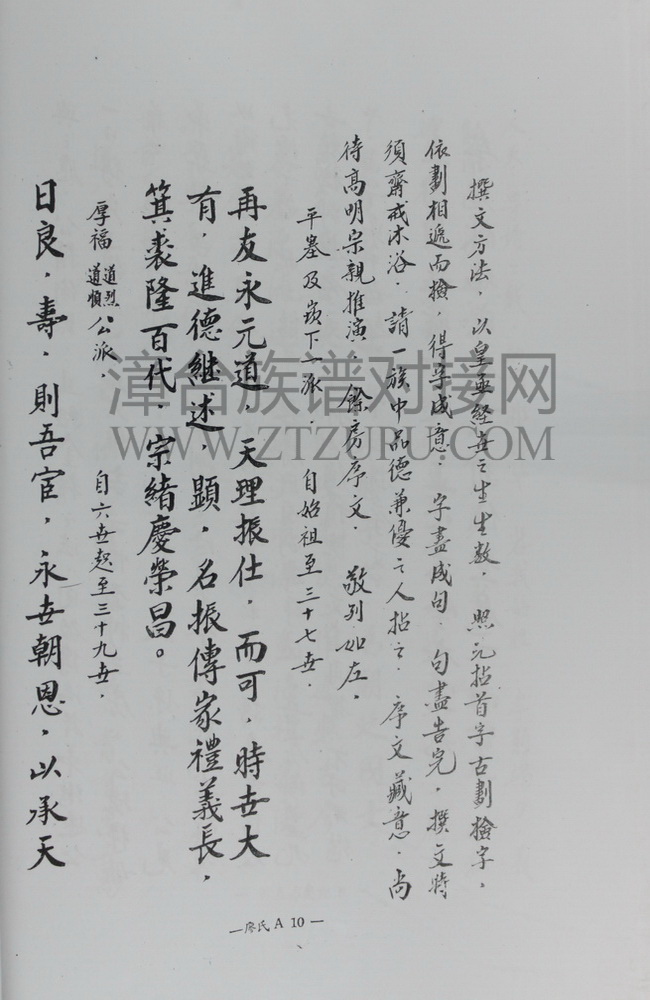 撰文方法，以皇孟経世之生生数，照元拈首字古劃撿字，
依劃相遞而撿，得字成意，字盡成句，句盡告完，撰文時
須齋戒沐浴，請一族中品德兼優之人拈之，序文藏意，尚
待高明宗親推演，餘房序文，敬列如左，
平𡐓及崁下派，自始祖至三十七世，
再友永元道，天理振仕，而可，時世大
有，進德継述，顯，名振傳家禮義長，
箕裘隆百代，宗緒慶榮昌。
厚福道烈道順公派，自六世起至三十九世，
日良，壽，則吾宦，永世朝恩，以承天
漳台族谱对接网
WWW.ZTZUPU.COM
—廖氏 A 10 —